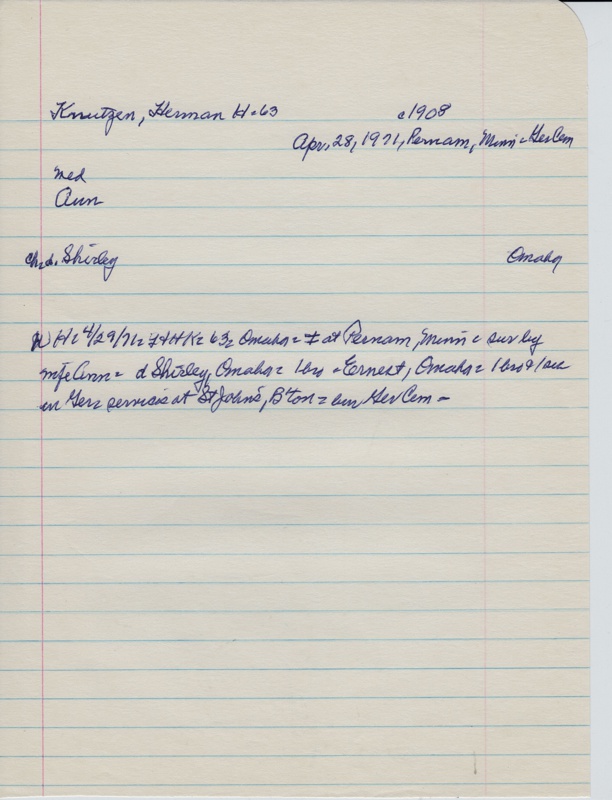 Knutzen, Herman H - 63 c1908
Apr, 28, 1971, Pernam, Minn - Ger Cem
med
Ann
chd. Shirley Omaha
W H = 4/29/71 = HHK = 63 = Omaha = at Pernam, Minn = sur by
wife Ann = d Shirley, Omaha = 1 bro - Ernest, Omaha = 1 bro & 1 sis
in Ger = services at St John's, B'ton = bur Ger Cem -